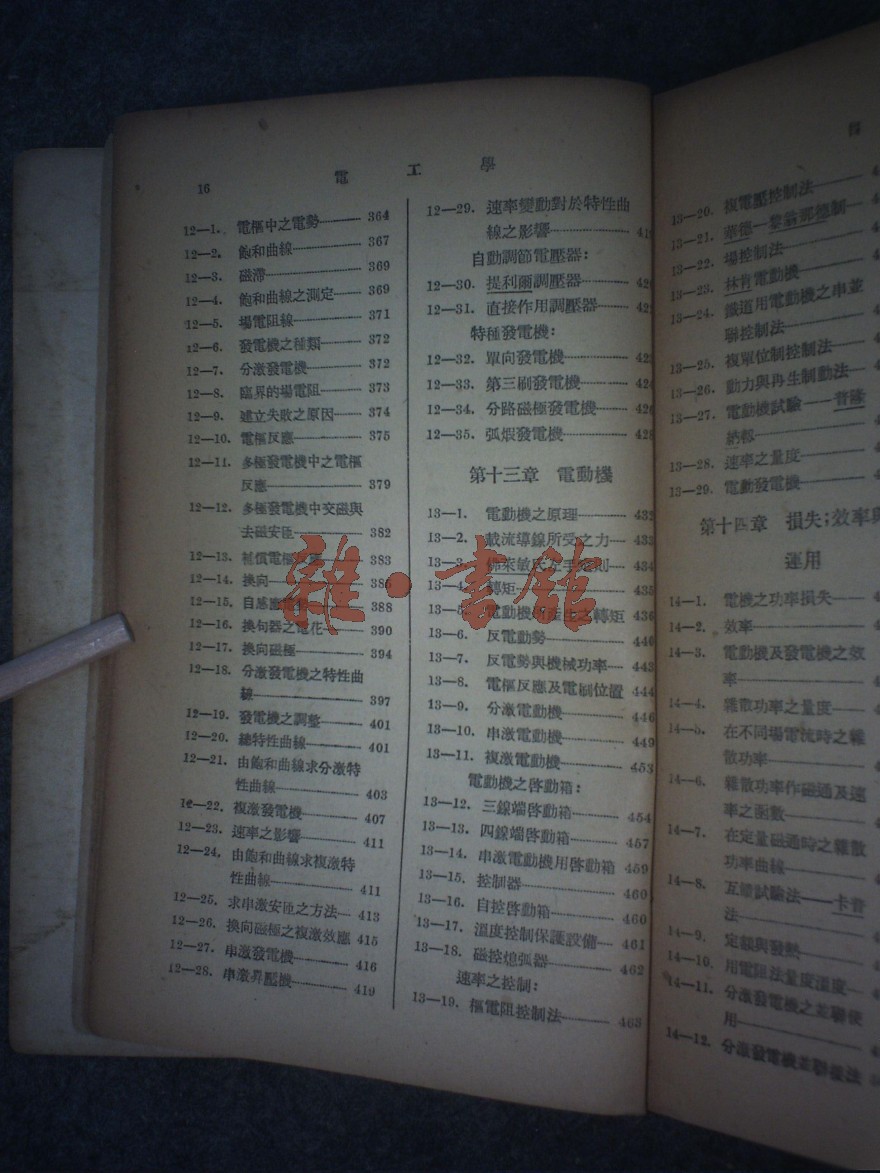 16
電 工 學
12—1. 電樞中之電勢 364
12—2. 飽和曲線 367
12—3. 磁滯 369
12—4. 飽和曲線之測定 369
12—5. 場電阻線 371
12—6. 發電機之種類 372
12—7. 分激發電機 372
12—8. 臨界的場電阻 373
12—9. 建立失敗之原因 374
12—10. 電樞反應 375
12—11. 多極發電機中之電樞
反應 379
12—12. 多極發電機中交磁與
去磁安匝 382
12—13. 補償電樞反應 383
12—14. 換向 386
12—15. 自感應 388
12—16. 換句器之電花 390
12—17. 換向磁極 394
12—18. 分激發電機之特性曲
線 397
12—19. 發電機之調整 401
12—20. 總特性曲線 401
12—21. 由飽和曲線求分激特
性曲線 403
12—22. 複激發電機 407
12—23. 速率之影響 411
12—24. 由飽和曲線求複激特
性曲線 411
12—25. 求串激安匝之方法 413
12—26. 換向磁極之複激效應 415
12—27. 串激發電機 416
12—28. 串激昇壓機 419
12—29. 速率變動對於特性曲
線之影響
自動調節電壓器：
12—30. 提利爾調壓器
12—31. 直接作用調壓器
特種發電機：
12—32. 單向發電機
12—33. 第三刷發電機
12—34. 分路磁極發電機
12—35. 弧煅發電機 428
第十三章 電動機
13—1. 電動機之原理 432
13—2. 載流導線所受之力 433
13—3. 佛萊敏氏左手定則 434
13—4. 轉矩 435
13—5. 電動機所產生之轉矩 436
13—6. 反電動勢 440
13—7. 反電勢與機械功率 443
13—8. 電樞反應及電刷位置 444
13—9. 分激電動機 446
13—10. 串激電動機 449
13—11. 複激電動機 453
電動機之啓動箱：
13—12. 三線端啓動箱 454
13—13. 四線端啓動箱 457
13—14. 串激電動機用啓動箱 459
13—15. 控制器 460
13—16. 自控啓動箱 460
13—17. 溫度控制保護設備 461
13—18. 磁控熄弧器 462
速率之控制：
13—19. 樞電阻控制法 463
13—20. 複電壓控制法
13—21. 華德—黎翁那德制
13—22. 場控制法
13—23. 林肯電動機
13—24. 鐵道用電動機之串並
聯控制法
13—25. 複單位制控制法
13—26. 動力與再生制動法
13—27. 電動機試驗——普隆
納軔
13—28. 速率之量度
13—29. 電動發電機
第十四章 損失；效率與
運用
14—1. 電機之功率損失
14—2. 效率
14—3. 電動機及發電機之效
率
14—4. 雜散功率之量度
14—5. 在不同場電流時之雜
散功率
14—6. 雜散功率作磁通及速
率之函數
14—7. 在定量磁通時之雜散
功率曲線
14—8. 互饋試驗法——卡普
法
14—9. 定額與發熱
14—10. 用電阻法量度溫度
14—11. 分激發電機之並聯使
用
14—12. 分激發電機並聯接法
雜·書館